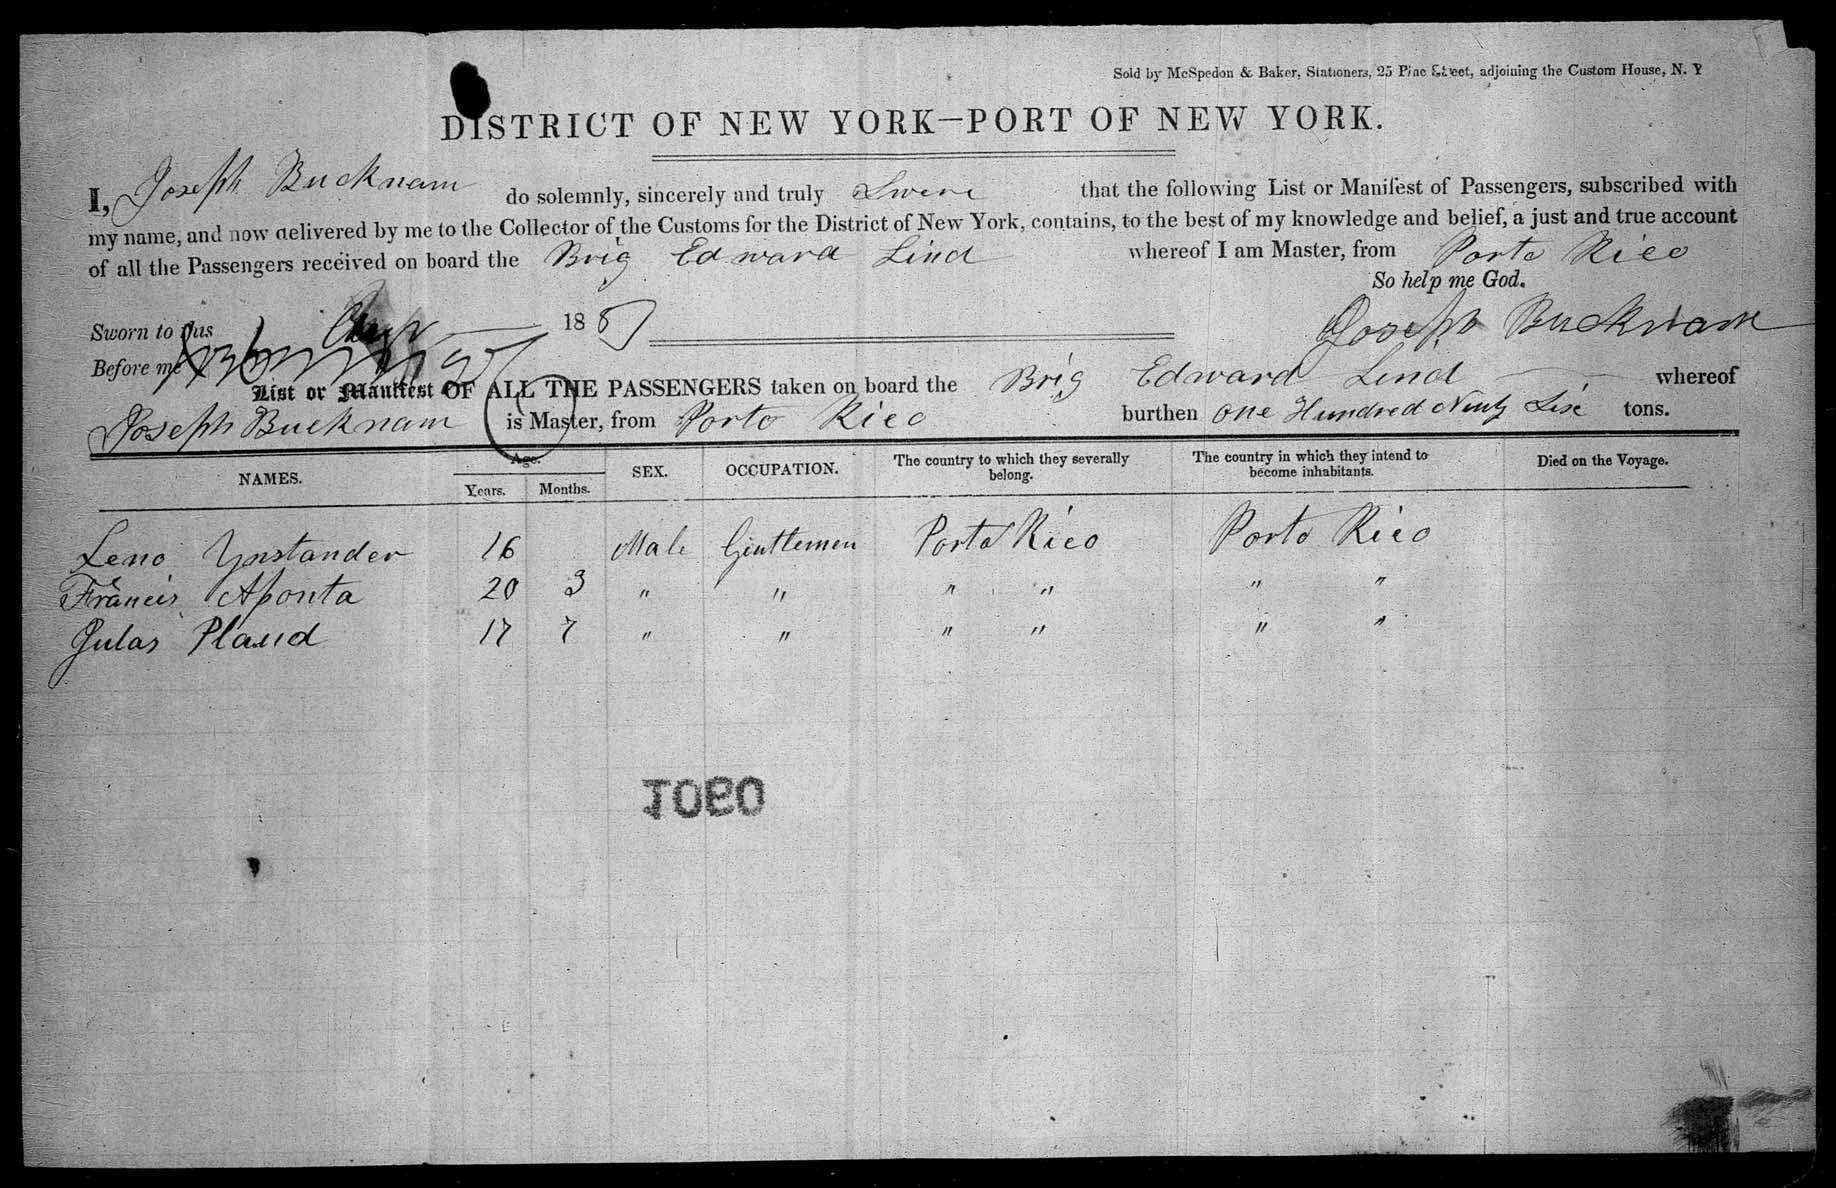 Sold by McSpedon & Baker, Stationers, 25 Pine Street, adjoining the Custom House, N. Y
DISTRICT OF NEW YORK—PORT OF NEW YORK.
I, Joseph Bucknam do solemnly, sincerely and truly Swere that the following List or Manifest of Passengers, subscribed with
my name, and now delivered by me to the Collector of the Customs for the District of New York, contains, to the best of my knowledge and belief, a just and true account
of all the Passengers received on board the Brig Edward Lind whereof I am Master, from Porto Rico
So help me God.
Sworn to this 18 Joseph Bucknam
Before me
List or Manifest OF ALL THE PASSENGERS taken on board the Brig Edward Lind whereof
Joseph Bucknam is Master, from Porto Rico burthen One Hundred Ninty Six tons.
NAMES. Age. Years. Months. SEX. OCCUPATION. The country to which they severally belong. The country in which they intend to become inhabitants. Died on the Voyage.
Leno Ynstander 16 Male Gentlemen Porto Rico Porto Rico
Francis Aponta 20 3 " " " " " "
Julas Plaud 17 7 " " " " " "
1090